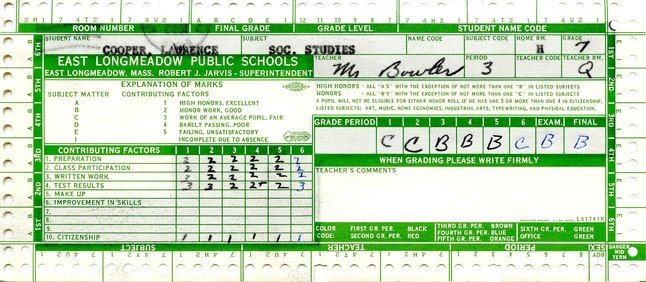 ROOM NUMBER FINAL GRADE GRADE LEVEL STUDENT NAME CODE
STUDENT NAME SUBJECT NAME CODE HOME RM. GRADE
COOPER, LAWRENCE SOC. STUDIES H 7
EAST LONGMEADOW PUBLIC SCHOOLS
EAST LONGMEADOW, MASS. ROBERT J. JARVIS - SUPERINTENDENT
TEACHER PERIOD TEACHER CODE TEACHER RM.
Mr Bowler 3 Q
EXPLANATION OF MARKS
SUBJECT MATTER CONTRIBUTING FACTORS
A 1 HIGH HONORS, EXCELLENT
B 2 HONOR WORK, GOOD
C 3 WORK OF AN AVERAGE PUPIL, FAIR
D 4 BARELY PASSING, POOR
E 5 FAILING, UNSATISFACTORY
I INCOMPLETE DUE TO ABSENCE
HIGH HONORS - ALL "A'S" WITH THE EXCEPTION OF NOT MORE THAN ONE "B" IN LISTED SUBJECTS
HONORS - ALL "B'S" WITH THE EXCEPTION OF NOT MORE THAN ONE "C" IN LISTED SUBJECTS
A PUPIL WILL NOT BE ELIGIBLE FOR EITHER HONOR ROLL IF HE HAS ONE 5 OR MORE THAN ONE 4 IN CITIZENSHIP.
LISTED SUBJECTS: ART, MUSIC, HOME ECONOMICS, INDUSTRIAL ARTS, TYPEWRITING, AND PHYSICAL EDUCATION.
GRADE PERIOD 1 2 3 4 5 6 EXAM. FINAL
C C B B B C B B
WHEN GRADING PLEASE WRITE FIRMLY
TEACHER'S COMMENTS
CONTRIBUTING FACTORS 1 2 3 4 5 6
1. PREPARATION 3 2 2 2 2 2
2. CLASS PARTICIPATION 2 2 2 2 2 2
3. WRITTEN WORK 2 2 2 2 2
4. TEST RESULTS 3 3 2 2+ 2 3
5. MAKE UP
6. IMPROVEMENT IN SKILLS
7.
8.
9.
10. CITIZENSHIP 1 1 1 1 1 1
L61741X
COLOR CODE: FIRST GR. PER. BLACK THIRD GR. PER. BROWN SIXTH GR. PER. GREEN
SECOND GR. PER. RED FOURTH GR. PER. BLUE OFFICE GREEN
FIFTH GR. PER. ORANGE
SUBJECT TEACHER PERIOD SEX
DANGER MID TERM
1ST 2ND 3RD 4TH 5TH 6TH